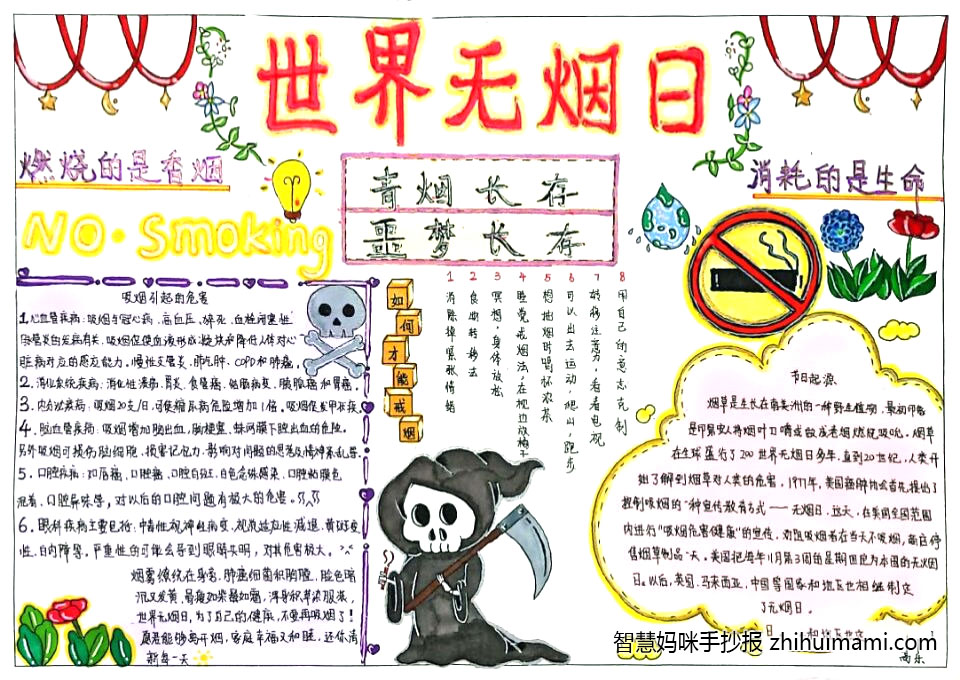 世界无烟日
燃烧的是香烟
消耗的是生命
NO·Smoking
青烟长存
噩梦长存
吸烟引起的危害
1.心血管疾病:吸烟与冠心病,高血压,猝死,血栓闭塞性
脏病对应的感应能力,慢性支气炎,肺气肿,COPD和肺癌,
2.消化系统疾病:消化性溃疡,胃炎,食管癌,结肠病变,胰腺癌和胃癌。
3.内分泌疾病:吸烟20支/日,可使糖尿病危险增加1倍。
4.脑血管疾病:吸烟增加脑出血,脑梗塞,蛛网膜下腔出血的危险。
另外吸烟可损伤脑细胞,损害记忆力,影响对问题的思考及精神紊乱等。
5.口腔疾病:如唇癌,口腔癌,口腔白斑,白色念珠感染,口腔粘膜色
沉着,口腔异味等,对以后的口腔问题有极大的危害。
6.眼科疾病主要包括:中毒性视神经病变,视觉适应性减退,黄斑变
性,白内障等,严重性的可能会导到眼睛失明,对其危害极大。
烟雾缭绕在身旁,肺盛细菌积胸膛,脸色暗
世界无烟日,为了自己的健康,不要再吸烟了!
愿君能够离开烟,家庭幸福又和睦,还你清
新每一天
如何才能戒烟
1 消除掉紧张情绪
2 食嘴转移法
3 冥想,身体放松
4 睡觉戒烟法,在枕边放橘子
5 想抽烟时喝杯浓茶
6 可以出去运动,爬山,跑步
7 转移注意力,看看电视
8 用自己的意志克制
节日起源
烟草是生长在南美洲的一种野生植物,最初印第
是印第安人将烟叶口嚼或做成卷烟燃烧吸吮。烟草
在全球蛋行了200世界无烟日多年,直到20世纪,人类开
始了解到烟草对人类的危害,1977年,美国癌肿协会首先提出了
控制吸烟的一种宣传教育方式——无烟日。这天,在美国全国范围
内进行"吸烟危害健康"的宣传,劝阻吸烟者在当天不吸烟,商店停
售烟草制品一天。美国把每年11月第3周的星期四定为本国的无烟
日。以后,英国,马来西亚,中国等国家和地区也相继制定
了无烟日。
智慧妈咪手抄报 zhihuimami.com